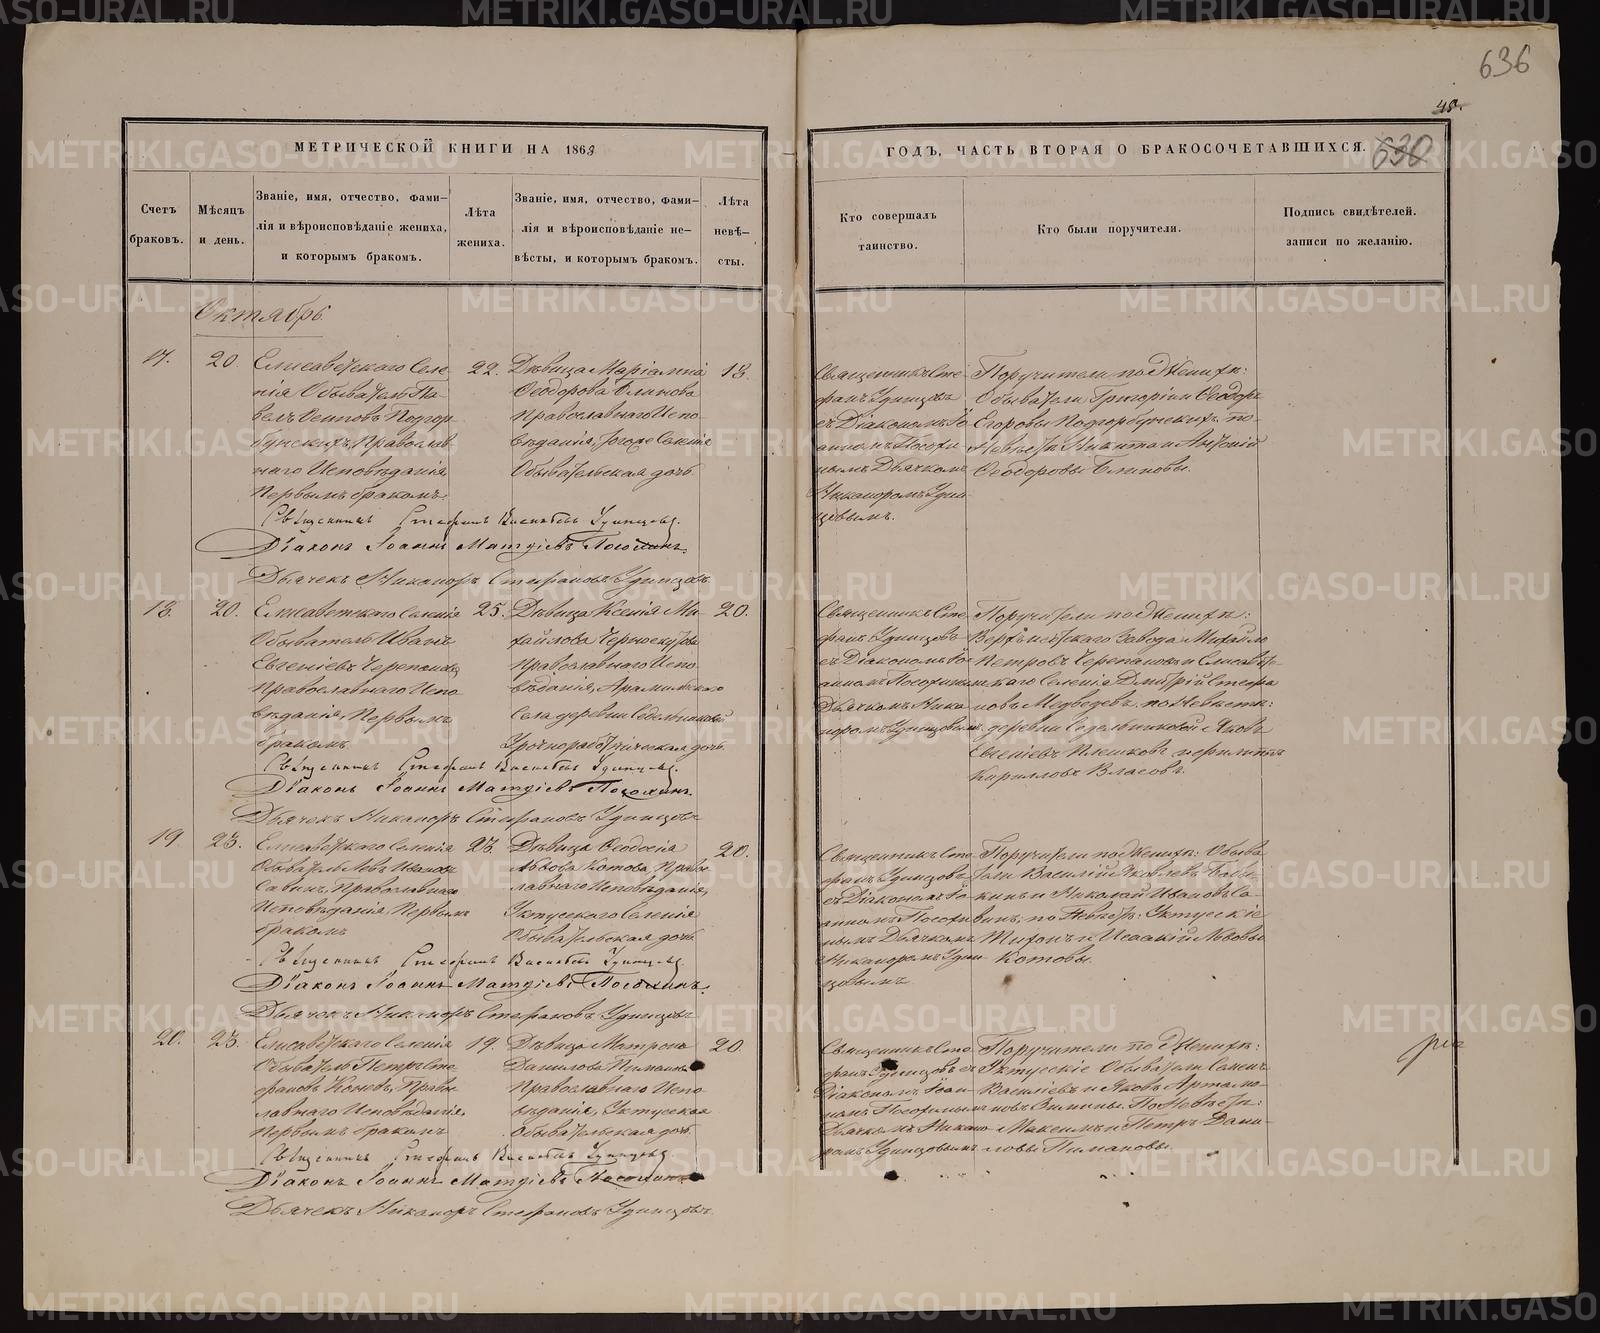 636
48.
МЕТРИЧЕСКОЙ КНИГИ НА 1863
ГОДЪ, ЧАСТЬ ВТОРАЯ О БРАКОСОЧЕТАВШИХСЯ.
630
Счетъ браковъ.
Мѣсяцъ и день.
Званіе, имя, отчество, фами-
лія и вѣроисповѣданіе жениха,
и которымъ бракомъ.
Лѣта жениха.
Званіе, имя, отчество, фами-
лія и вѣроисповѣданіе не-
вѣсты, и которымъ бракомъ.
Лѣта невѣ-
сты.
Кто совершалъ
таинство.
Кто были поручители.
Подпись свидѣтелей.
записи по желанію.
Октябрь
17.
20.
Елисаветскаго Селе
нія Обыватель Па-
велъ Осиповъ Подгор
бунскихъ, Православ
наго Исповѣданія
Первымъ бракомъ.
22.
Дѣвица Маріамна
Ѳеодорова Блинова
Православнаго Испо
вѣданія, тогоже Селенія
Обывательская дочь
18.
Священникъ Сте
фанъ Удинцовъ
съ Діакономъ Іо
анномъ Посохи
нымъ Дьячкомъ
Никаноромъ Удин
цовымъ.
Поручители по Женихѣ:
Обыватели Григорій и Ѳеодоръ
Егоровы Подгорбунскихъ, по
Невѣстѣ Никита и Антоній
Ѳеодоровы Блиновы.
Священникъ Стефанъ Васильевъ Удинцовъ.
Діаконъ Іоаннъ Матѳіевъ Посохинъ.
Дьячекъ Никаноръ Стефановъ Удинцовъ
18.
20.
Елисаветскаго Селенія
Обыватель Иванъ
Евгеніевъ Черепановъ
Православнаго Испо
вѣданія, Первымъ
бракомъ
25.
Дѣвица Ксенія Ми-
хайлова Черноскутова
Православнаго Испо
вѣданія, Арамильскаго
Села деревни Седельниковой
Урочнорабочническая дочь.
20.
Священникъ Сте
фанъ Удинцовъ
съ Діакономъ Іо
анномъ Посохинымъ
Дьячкомъ Ника
норомъ Удинцовымъ
Поручители по Женихѣ:
Верхъ Исетскаго Завода Михайло
Петровъ Черепановъ и Елисавет-
скаго Селенія Дмитрій Стефа
новъ Медведевъ, по Невѣстѣ:
деревни Седельниковой Яковъ
Евгеніевъ
Кирилловъ Власовъ.
Священникъ Стефанъ Васильевъ Удинцовъ.
Діаконъ Іоаннъ Матѳіевъ Посохинъ.
Дьячекъ Никаноръ Стефановъ Удинцовъ
19
23.
Елисаветскаго Селенія
Обыватель Левъ Ивановъ
Савинъ, Православнаго
Исповѣданія, Первымъ
бракомъ
23.
Дѣвица Ѳеодосія
Львова Котова, Право
славнаго Исповѣданія,
Уктусскаго Селенія
Обывательская дочь
20.
Священникъ Сте
фанъ Удинцовъ
съ Діакономъ Іо
анномъ Посохи
нымъ Дьячкомъ
Никаноромъ Удин
цовымъ
Поручители по Женихѣ: Обыва
тели Василій Яковлевъ Бабы-
кинъ и Николай Ивановъ Са-
винъ; по Невѣстѣ: Уктусскіе
Тихонъ и Исаакій Львовы
Котовы.
Священникъ Стефанъ Васильевъ Удинцовъ.
Діаконъ Іоаннъ Матѳіевъ Посохинъ.
Дьячекъ Никаноръ Стефановъ Удинцовъ
20.
23.
Елисаветскаго Селенія
Обыватель Петръ Сте
фановъ Коневъ, Право
славнаго Исповѣданія,
Первымъ бракомъ
19.
Дѣвица Матрона
Данилова Пиманова
Православнаго Испо
вѣданія, Уктусская
Обывательская дочь.
20
Священникъ Сте
фанъ Удинцовъ съ
Діакономъ Іоан
номъ Посохинымъ
Дьячкомъ Никано
ромъ Удинцовымъ
Поручители по Женихѣ:
Уктусскіе Обыватели Семенъ
Васильевъ и Яковъ Артамо-
новъ Зимины. По Невѣстѣ:
Максимъ и Петръ Дани-
ловы Пимановы.
Священникъ Стефанъ Васильевъ Удинцовъ.
Діаконъ Іоаннъ Матѳіевъ Посохинъ
Дьячекъ Никаноръ Стефановъ Удинцовъ.
METRIKI.GASO-URAL.RU